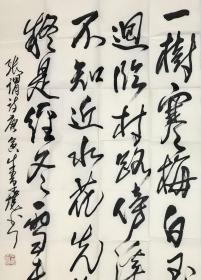 一樹寒梅白玉
迥临村路傍溪
不知近水花先
疑是經冬雪未
張謂詩庚寅